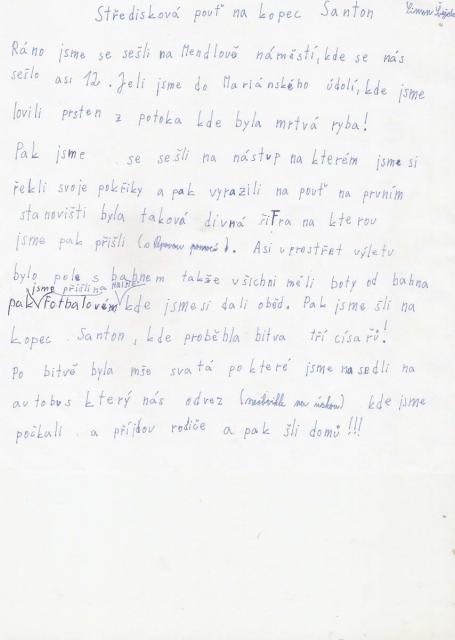 Středisková pouť na kopec Santon
Ráno jsme se sešli na Mendlově náměstí, kde se nás
sešlo asi 12. Jeli jsme do Mariánského údolí, kde jsme
lovili prsten z potoka kde byla mrtvá ryba!
Pak jsme se sešli na nástup na kterém jsme si
řekli svoje pokřiky a pak vyrazili na pouť na prvním
stanovišti byla taková divná šiFra na kterou
jsme pak přišli (s pomocí). Asi uprostřet výletu
bylo pole s bahnem takže všichni měli boty od bahna
jsme přišli na hřiště
pak fotbalovém kde jsme si dali oběd. Pak jsme šli na
kopec Santon, kde proběhla bitva tří císařů!
Po bitvě byla mše svatá po které jsme nasedli na
autobus který nás odvez kde jsme
počkali a příjdou rodiče a pak šli domů!!!